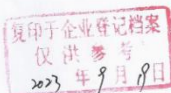 复印于企业登记档案
仅供参考
2023年9月19日